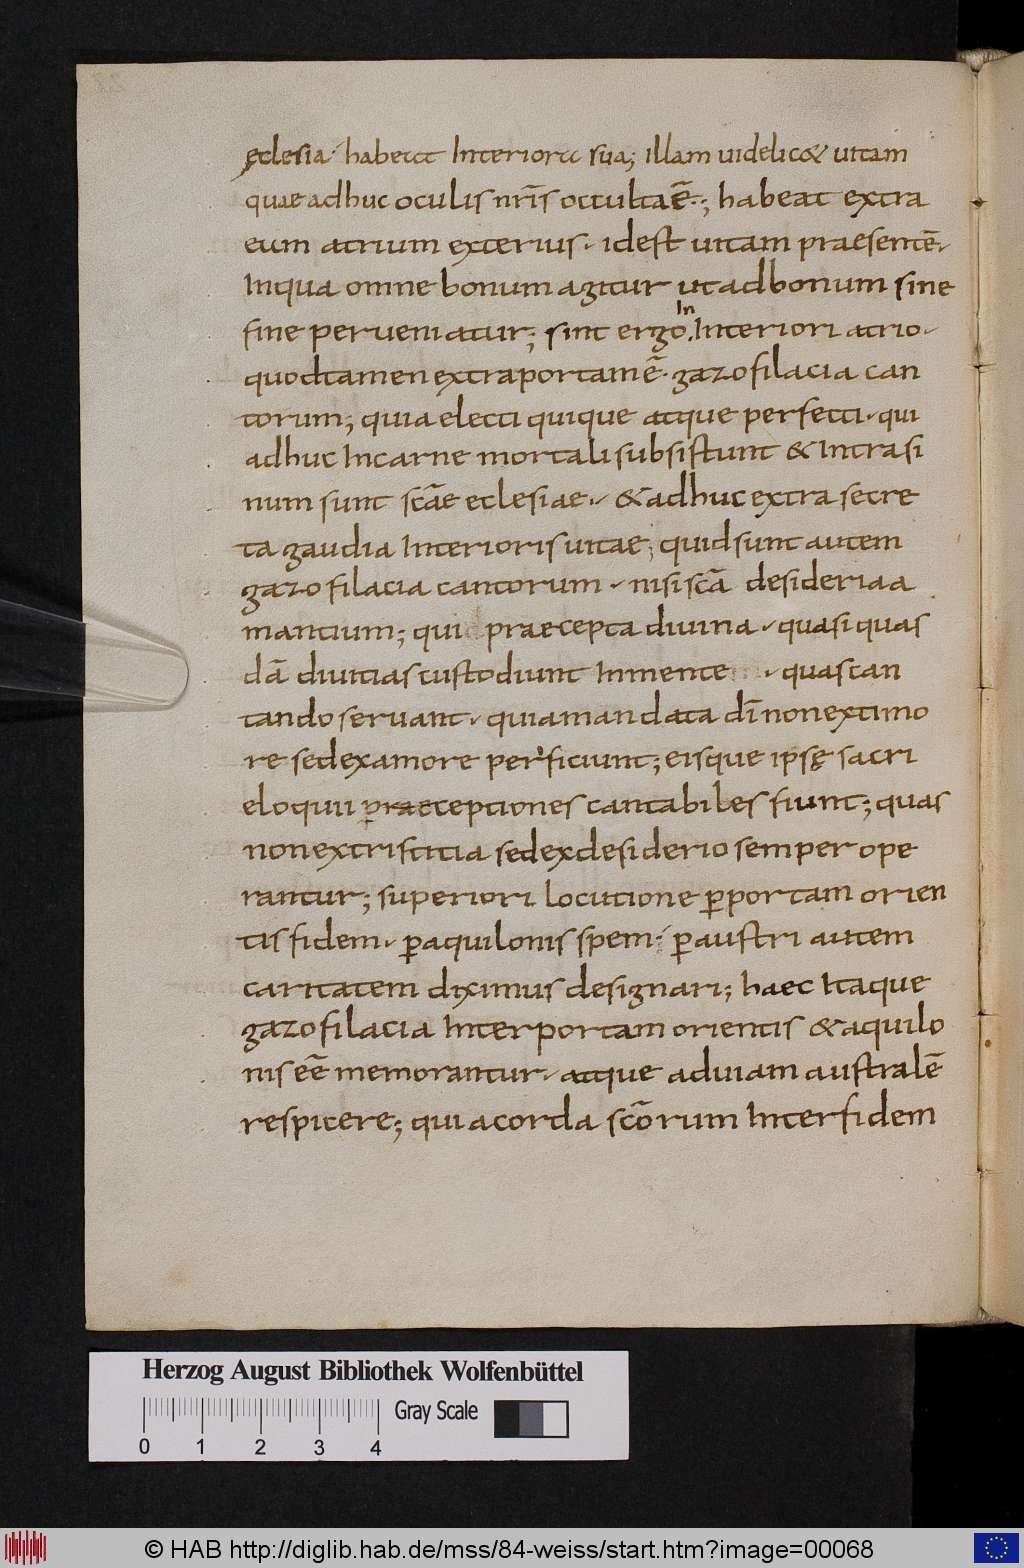 ęclesia· habeat Interiora sua; illam uidelic& uitam
quae adhuc oculis nr̄is occulta ē·; habeat extra
eum atrium exterius· id est uitam praesentē·
In qua omne bonum agitur ut ad bonum sine
fine perueniatur; sint ergo In Interiori atrio·
quod tamen extra portam ē· gazofilacia can
torum; quia electi quique atque perfecti· qui
adhuc In carne mortali subsistunt & Intra si
num sunt sc̄ae eclesiae· & adhuc extra secre
ta gaudia Interioris uitae; quid sunt autem
gazofilacia cantorum· nisi sc̄a desideria a
mantium; qui praecepta diuina· quasi quas
dā diuitias custodiunt In mente· quas can
tando seruant· quia mandata dī non ex timo
re sed ex amore perficiunt; eisque ipsę sacri
eloquii praeceptiones cantabiles fiunt; quas
non ex tristitia sed ex desiderio semper ope
rantur; superiori locutione ꝑ portam orien
tis fidem· ꝑ aquilonis spem· ꝑ austri autem
caritatem diximus designari; haec Itaque
gazofilacia Inter portam orientis & aquilo
nis eē memorantur· atque ad uiam australē
respicere; quia corda sc̄orum Inter fidem
Herzog August Bibliothek Wolfenbüttel
Gray Scale
0 1 2 3 4
© HAB http://diglib.hab.de/mss/84-weiss/start.htm?image=00068